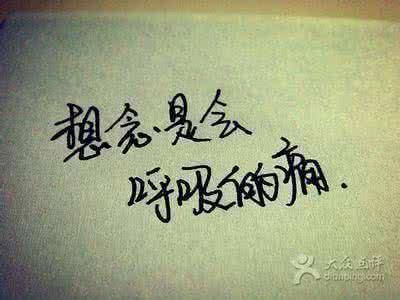 想念是会
呼吸的痛.
大众点评
dianping.com